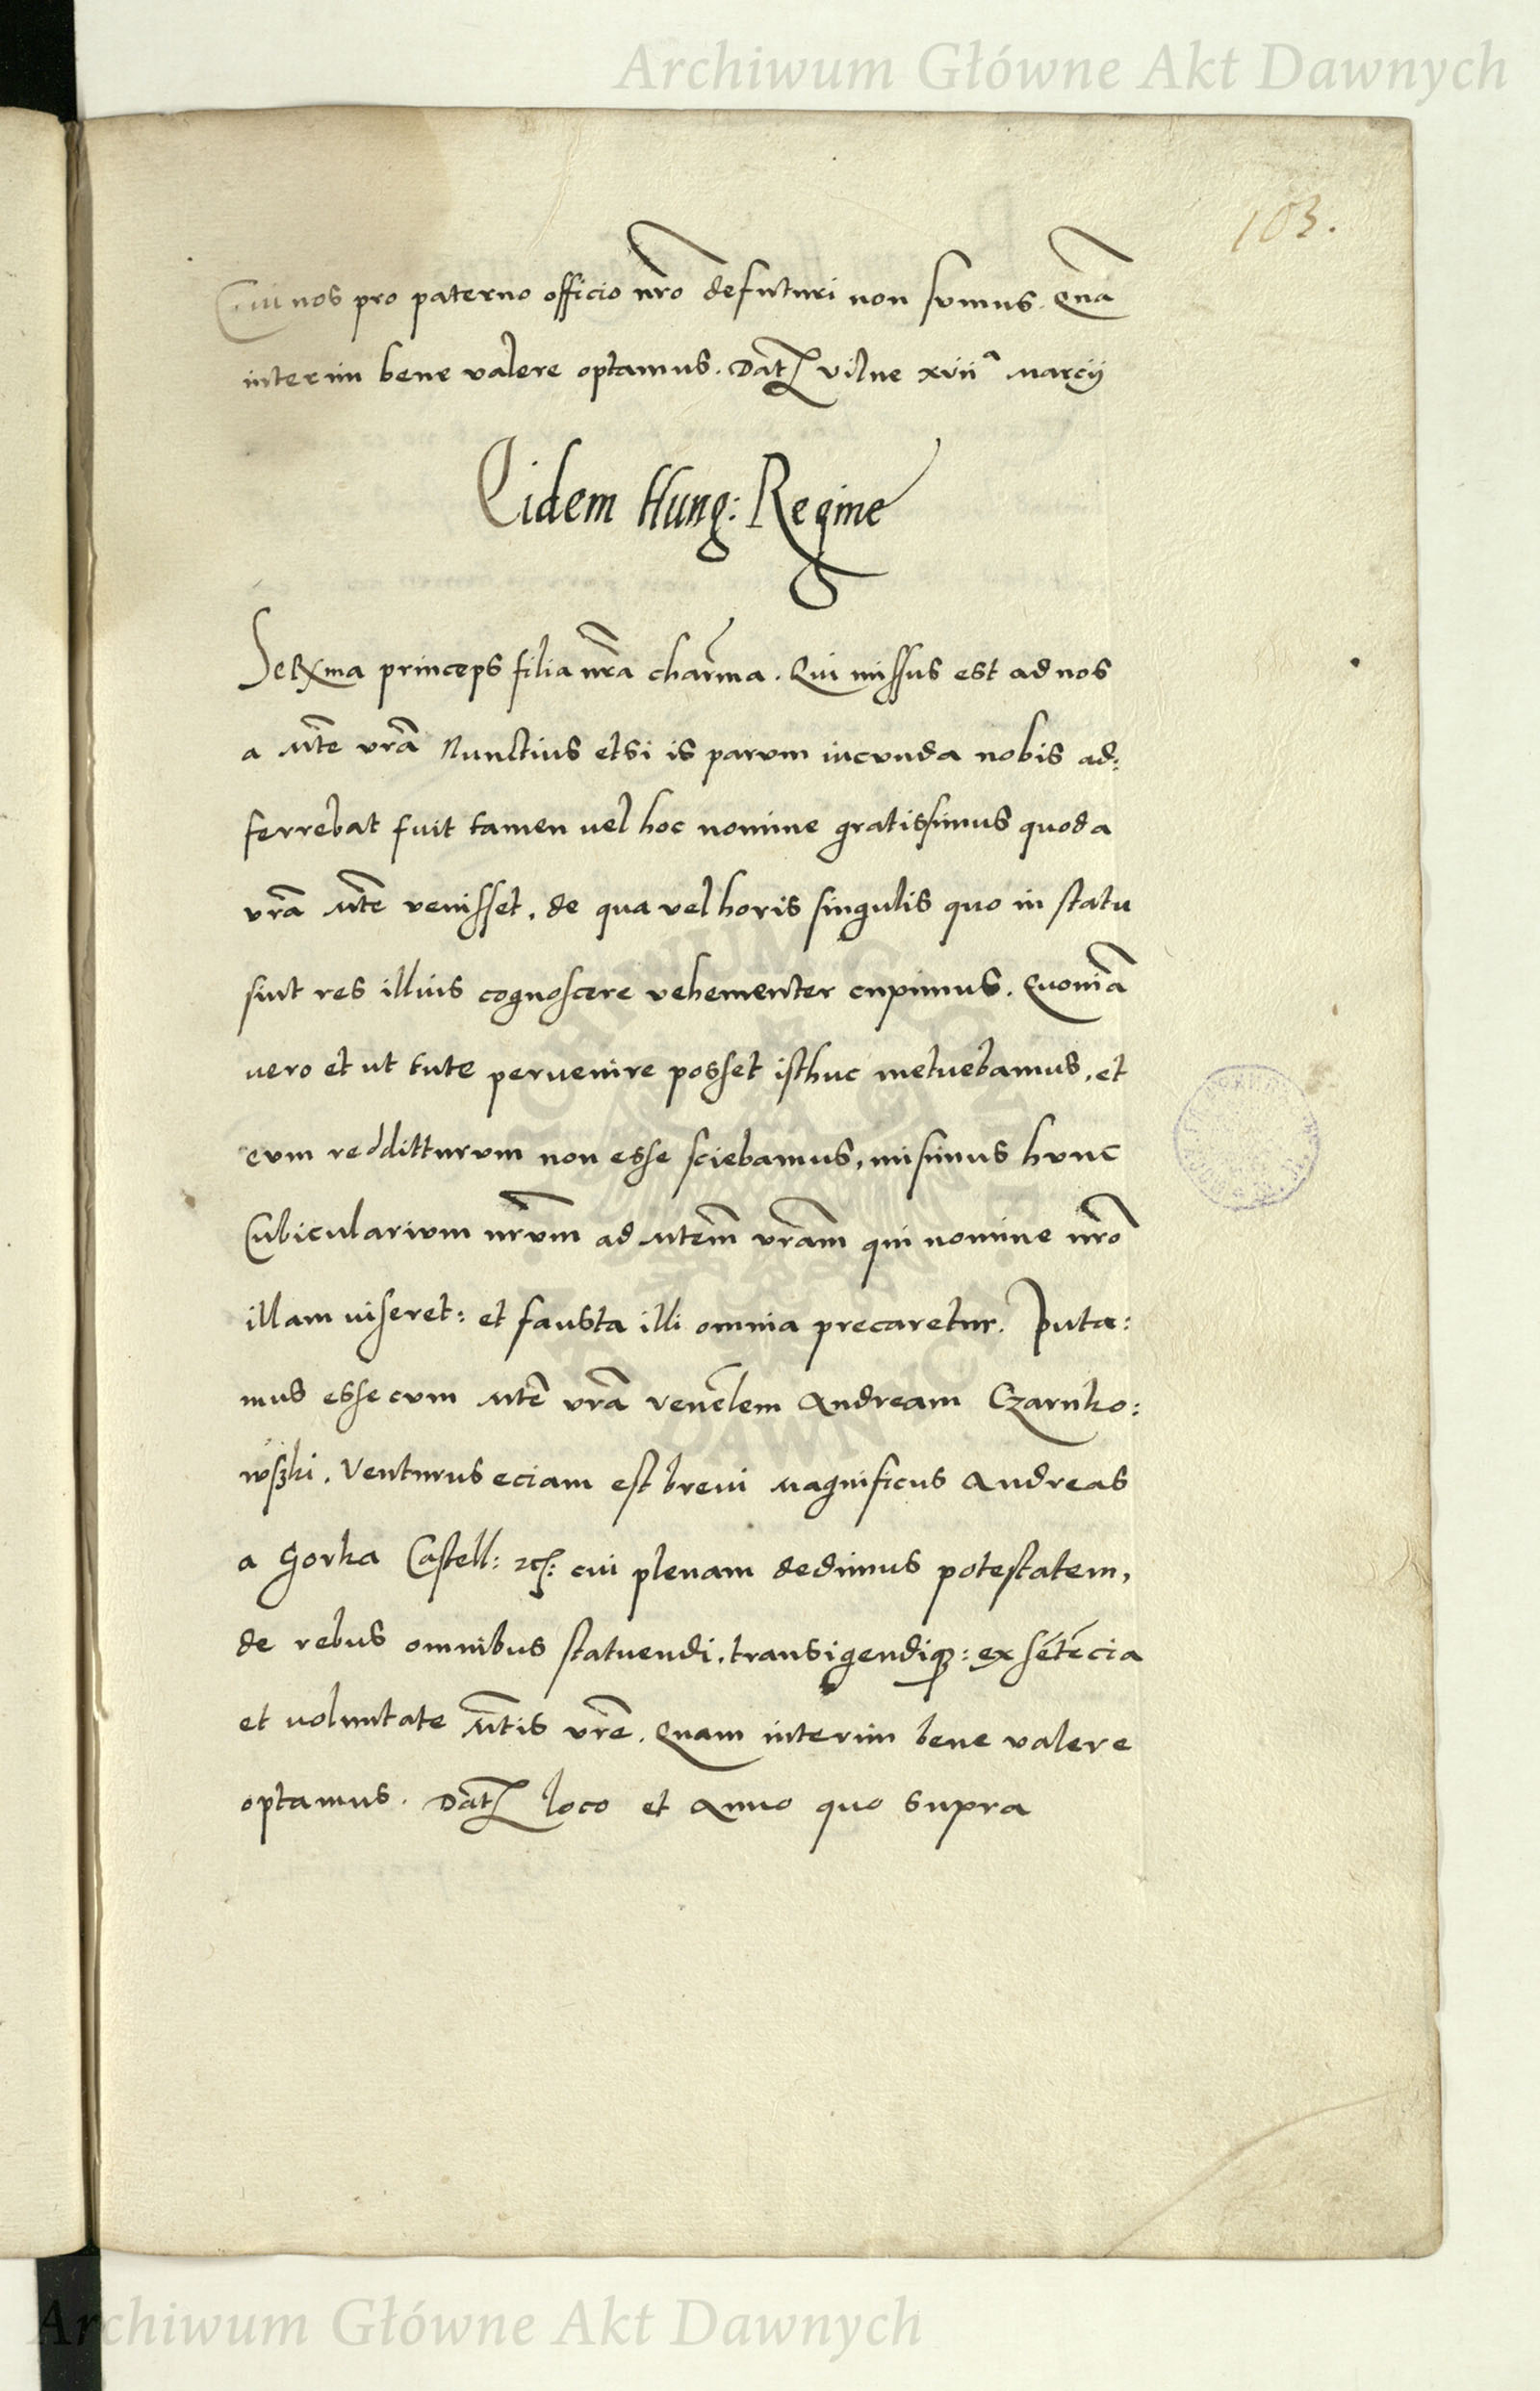 Archiwum Główne Akt Dawnych
103.
Cui nos pro paterno officio nr̃o defuturi non sumus. Quã
interim bene valere optamus. Dat̃ Vilne xviiª Marcij
Eidem Hung: Regine
Serxma princeps filia nr̃a char̃ma. Qui missus est ad nos
a Mt̃e vr̃a Nunctius etsi is parum iucunda nobis ad:
ferrebat fuit tamen vel hoc nomine gratissimus quod a
vr̃a Mt̃e venisset, de qua vel horis singulis quo in statu
sint res illius cognoscere vehementer cupimus. Quoniã
vero et ut tute pervenire posset isthuc metuebamus, et
eum redditturum non esse sciebamus, misimus hunc
Cubicularium nr̃um ad Mtem̃ vr̃am qui nomine nr̃o
illam viseret: et fausta illi omnia precaretur. Puta:
mus esse cum Mt̃e vr̃a Ven̄lem Andream Czarnko:
wsķi. Venturus eciam est brevi Magnificus Andreas
a Gorka Castell: etc: cui plenam dedimus potestatem,
de rebus omnibus statuendi, transigendiq3: ex sẽtẽcia
et voluntate Mt̃is vr̃e. Quam interim bene valere
optamus. Dat̃ loco et Anno quo supra
ARCHIWUM GŁÓWNE
AKT DAWNYCH
Archiwum Główne Akt Dawnych